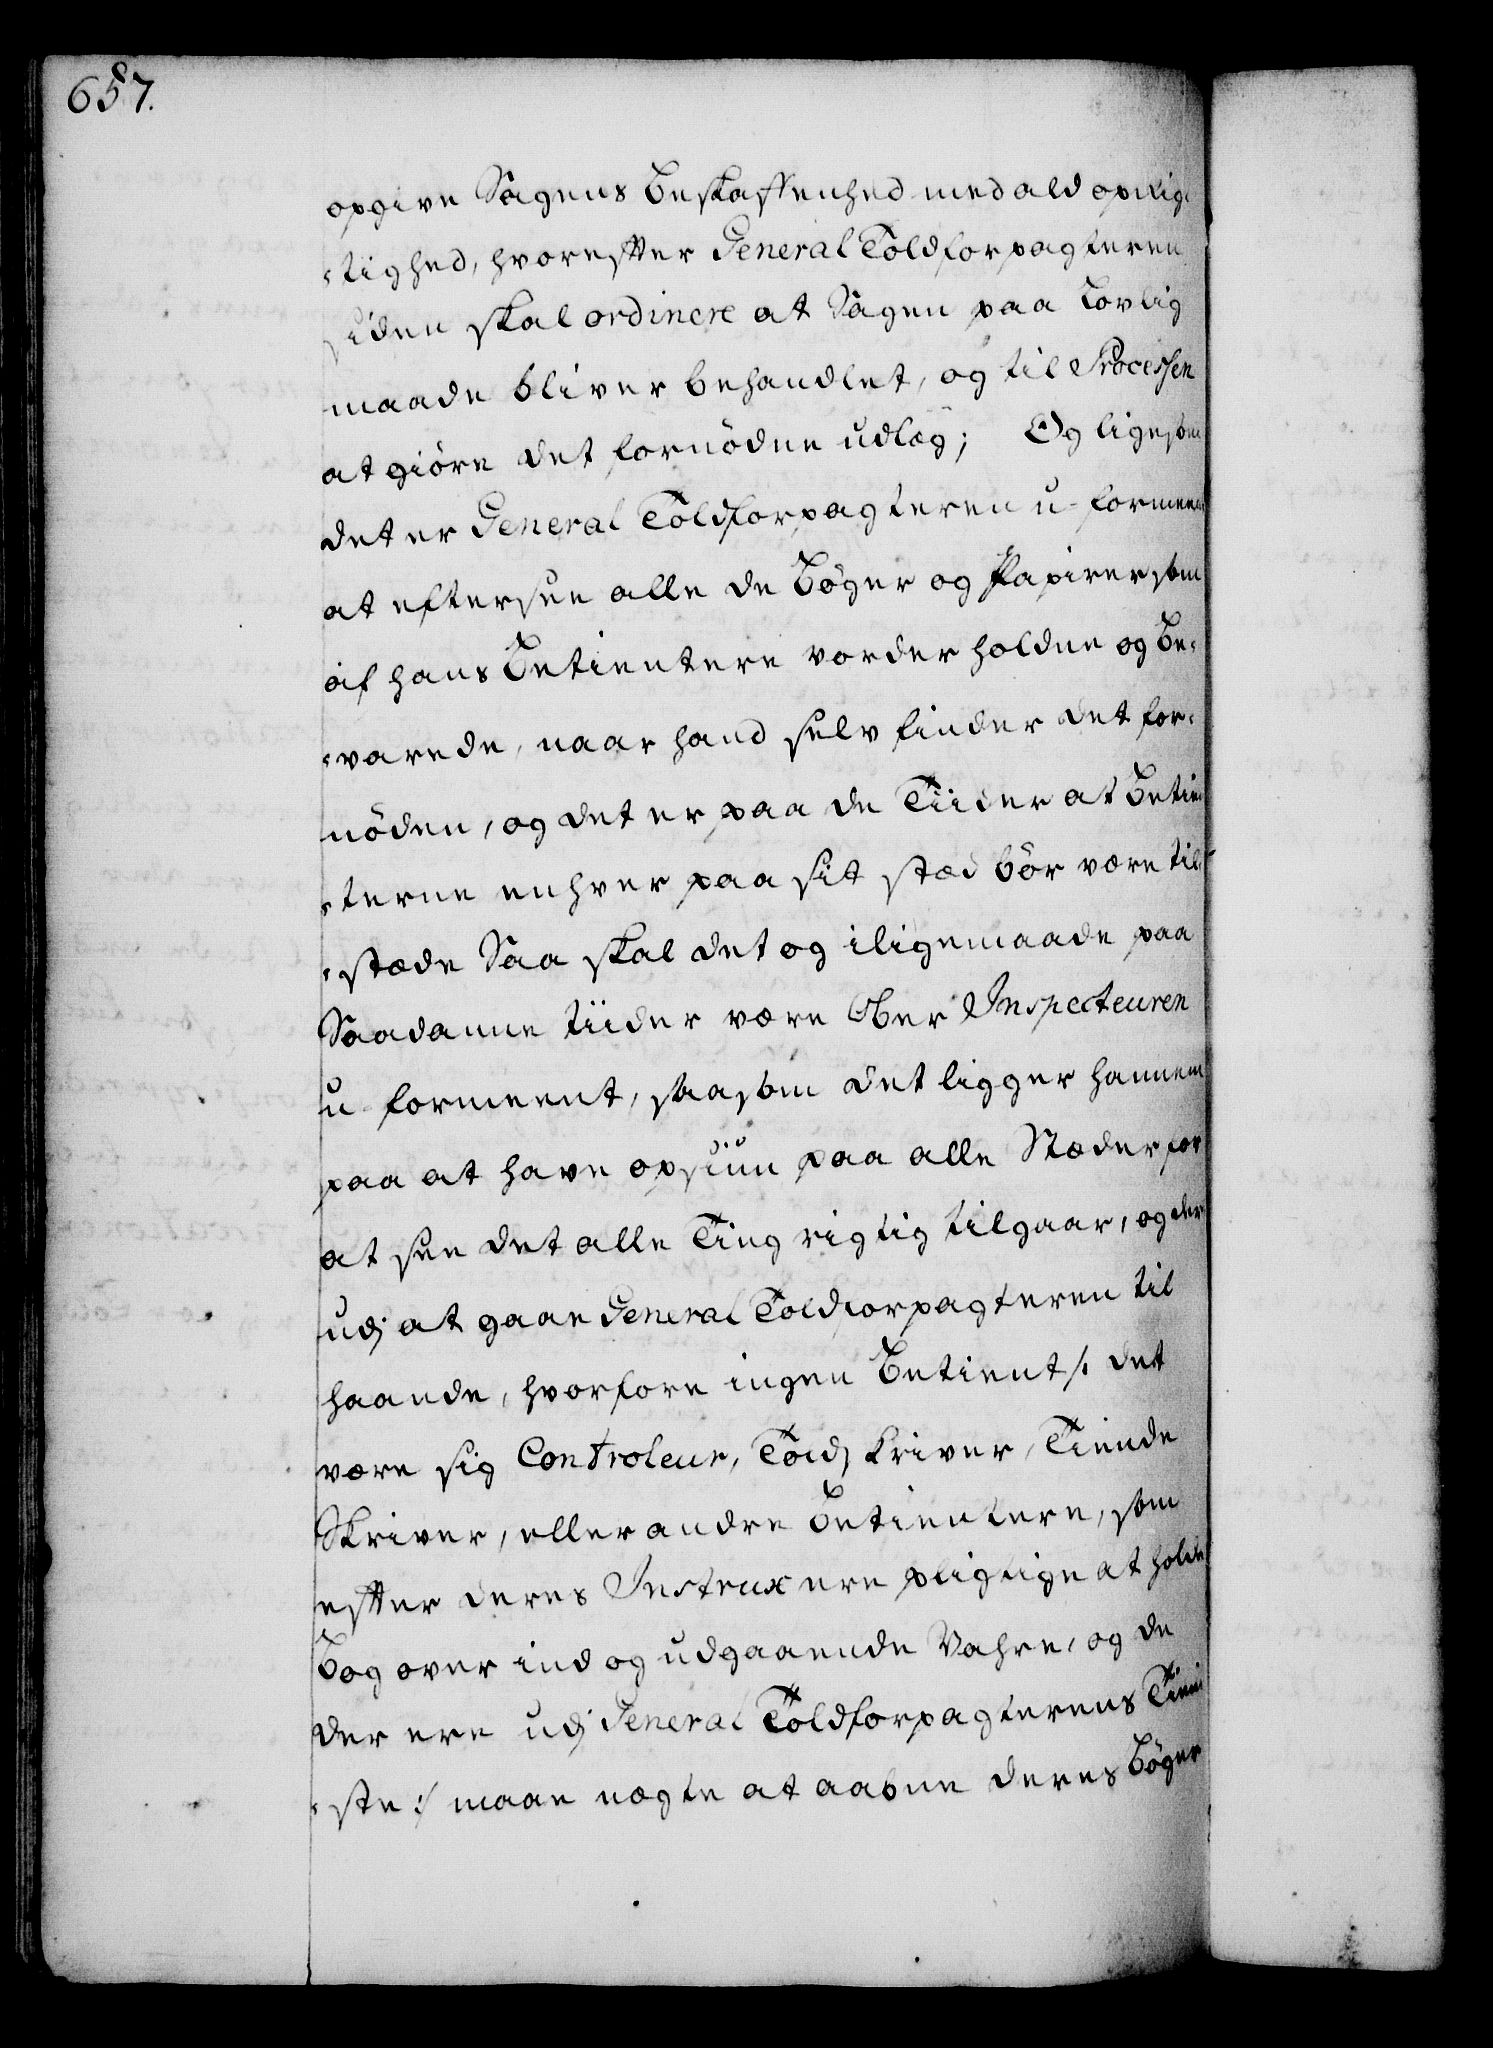 657.
opgive Sagens Beskaffenhed med ald oprig-
-tighed, hvorefter General Toldforpagteren
siden skal ordinere at Sagen paa Lovlig
maade bliver behandlet, og til Processen
at giøre det fornødne udlæg; Og ligesom
det er General Toldforpagteren u-formeent
at eftersee alle de Bøger og Papirer som
af hans Betientere vorder holdne og Be-
-varede, naar hand selv finder det for-
nøden, og det er paa de Tiider at Betien
-terne enhver paa sit stæd bør være til
-stæde Saa skal det og iligemaade paa
Saadanne tiider være Ober Inspecteuren
u-formeent, saasom det ligger hannem
paa at have opsiun paa alle Stæder for
at see det alle Ting rigtig tilgaar, og der
udj at gaae General Toldforpagteren til
haande, hvorfore ingen Betient /: det
være sig Controleur, Toldskriver, Tiende
Skriver, eller andre Betientere, som
efter deres Instrux ere pligtige at holde
Bog over ind og udgaaende Vahre, og de
der ere udj General Toldforpagterens Tieni
-ste :/ maae nægte at aabne deres Bøger